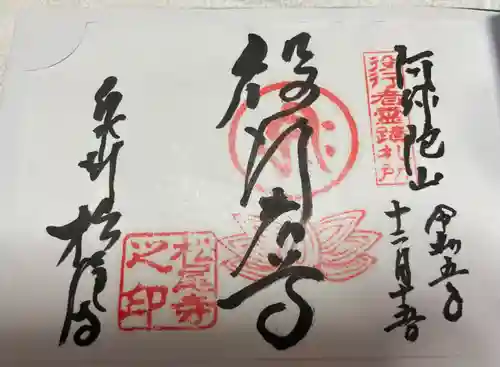 役行者霊蹟札所
阿弥陀山
令和五年
十二月十五日
役行者尊
泉州 松尾寺
松尾寺之印